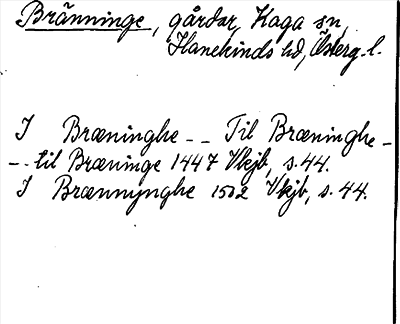 Bränninge, gårdar, Kaga sn,
Hanekinds hd, Österg. l.
I Bræninghe - - Til Bræninghe -
- - til Bræninge 1447 Vkjb, s. 44.
I Brænnynghe 1502 Vkjb, s. 44.